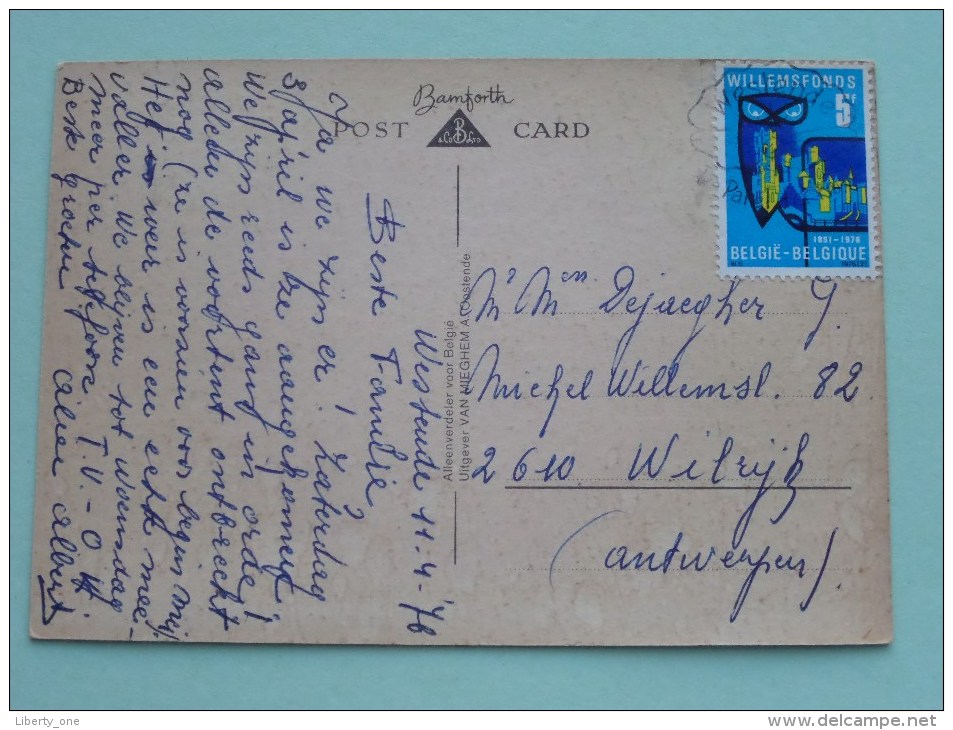 Bamforth
POST CARD
B
& Co Ltd
WILLEMSFONDS
5F
1851-1976
BELGIË-BELGIQUE
Westende 11-4-'76
Beste Familie
Ja we zijn er! Zaterdag
3 april is tze aangekomen?
We zijn reeds gans in orde!
alleen de voortent ontbreekt
nog (ze is voorzien voor begin mij
Het weer is een echte mee-
valler. We blijven tot woensdag
meer per telefoon T.V.-O H.
Beste groeten Aline albert
Alleenverdeler voor België
Uitgever VAN MIEGHEM A. Oostende
Mr Men Dejaegher G.
Michel Willemsl. 82
2610 Wilrijk
(antwerpen)
Liberty_one
© delcampe.net